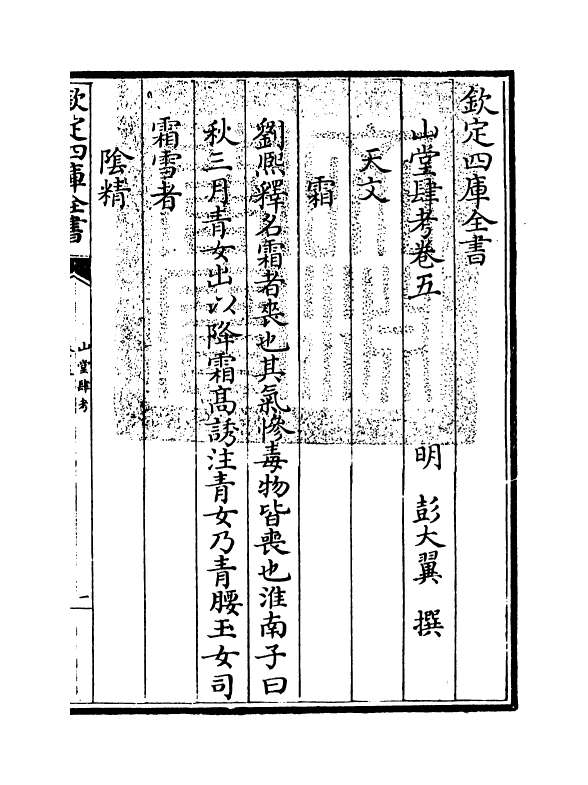 欽定四庫全書
山堂肆考卷五
明 彭大翼 撰
天文
霜
劉熈釋名霜者喪也其氣慘毒物皆喪也淮南子曰
秋三月青女出以降霜髙誘注青女乃青腰玉女司
霜雪者
隂精
欽定四庫全書
山堂肆考
一